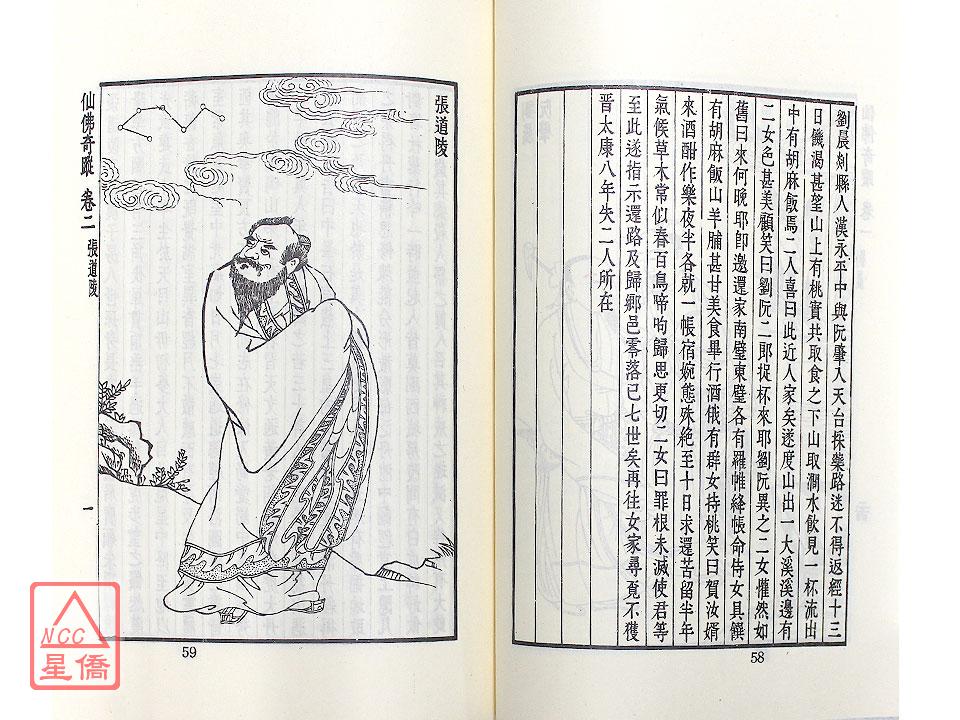 劉晨剡縣人漢永平中與阮肇入天台採藥路迷不得返經十三
日饑渴甚望山上有桃實共取食之下山取澗水飲見一杯流出
中有胡麻飯焉二人喜曰此近人家矣遂度山出一大溪溪邊有
二女色甚美顧笑曰劉阮二郎捉杯來耶劉阮異之二女懽然如
舊曰來何晚耶即邀還家南壁東壁各有羅帷絳帳命侍女具饌
有胡麻飯山羊脯甚甘美食畢行酒俄有群女持桃笑曰賀汝婿
來酒酣作樂夜半各就一帳宿婉態殊絕至十日求還苦留半年
氣候草木常似春百鳥啼呴歸思更切二女曰罪根未滅使君等
至此遂指示還路及歸鄉邑零落已七世矣再往女家尋覓不獲
晉太康八年失二人所在
58
張道陵
仙佛奇蹤 卷二 張道陵
一
59
NCC
星僑